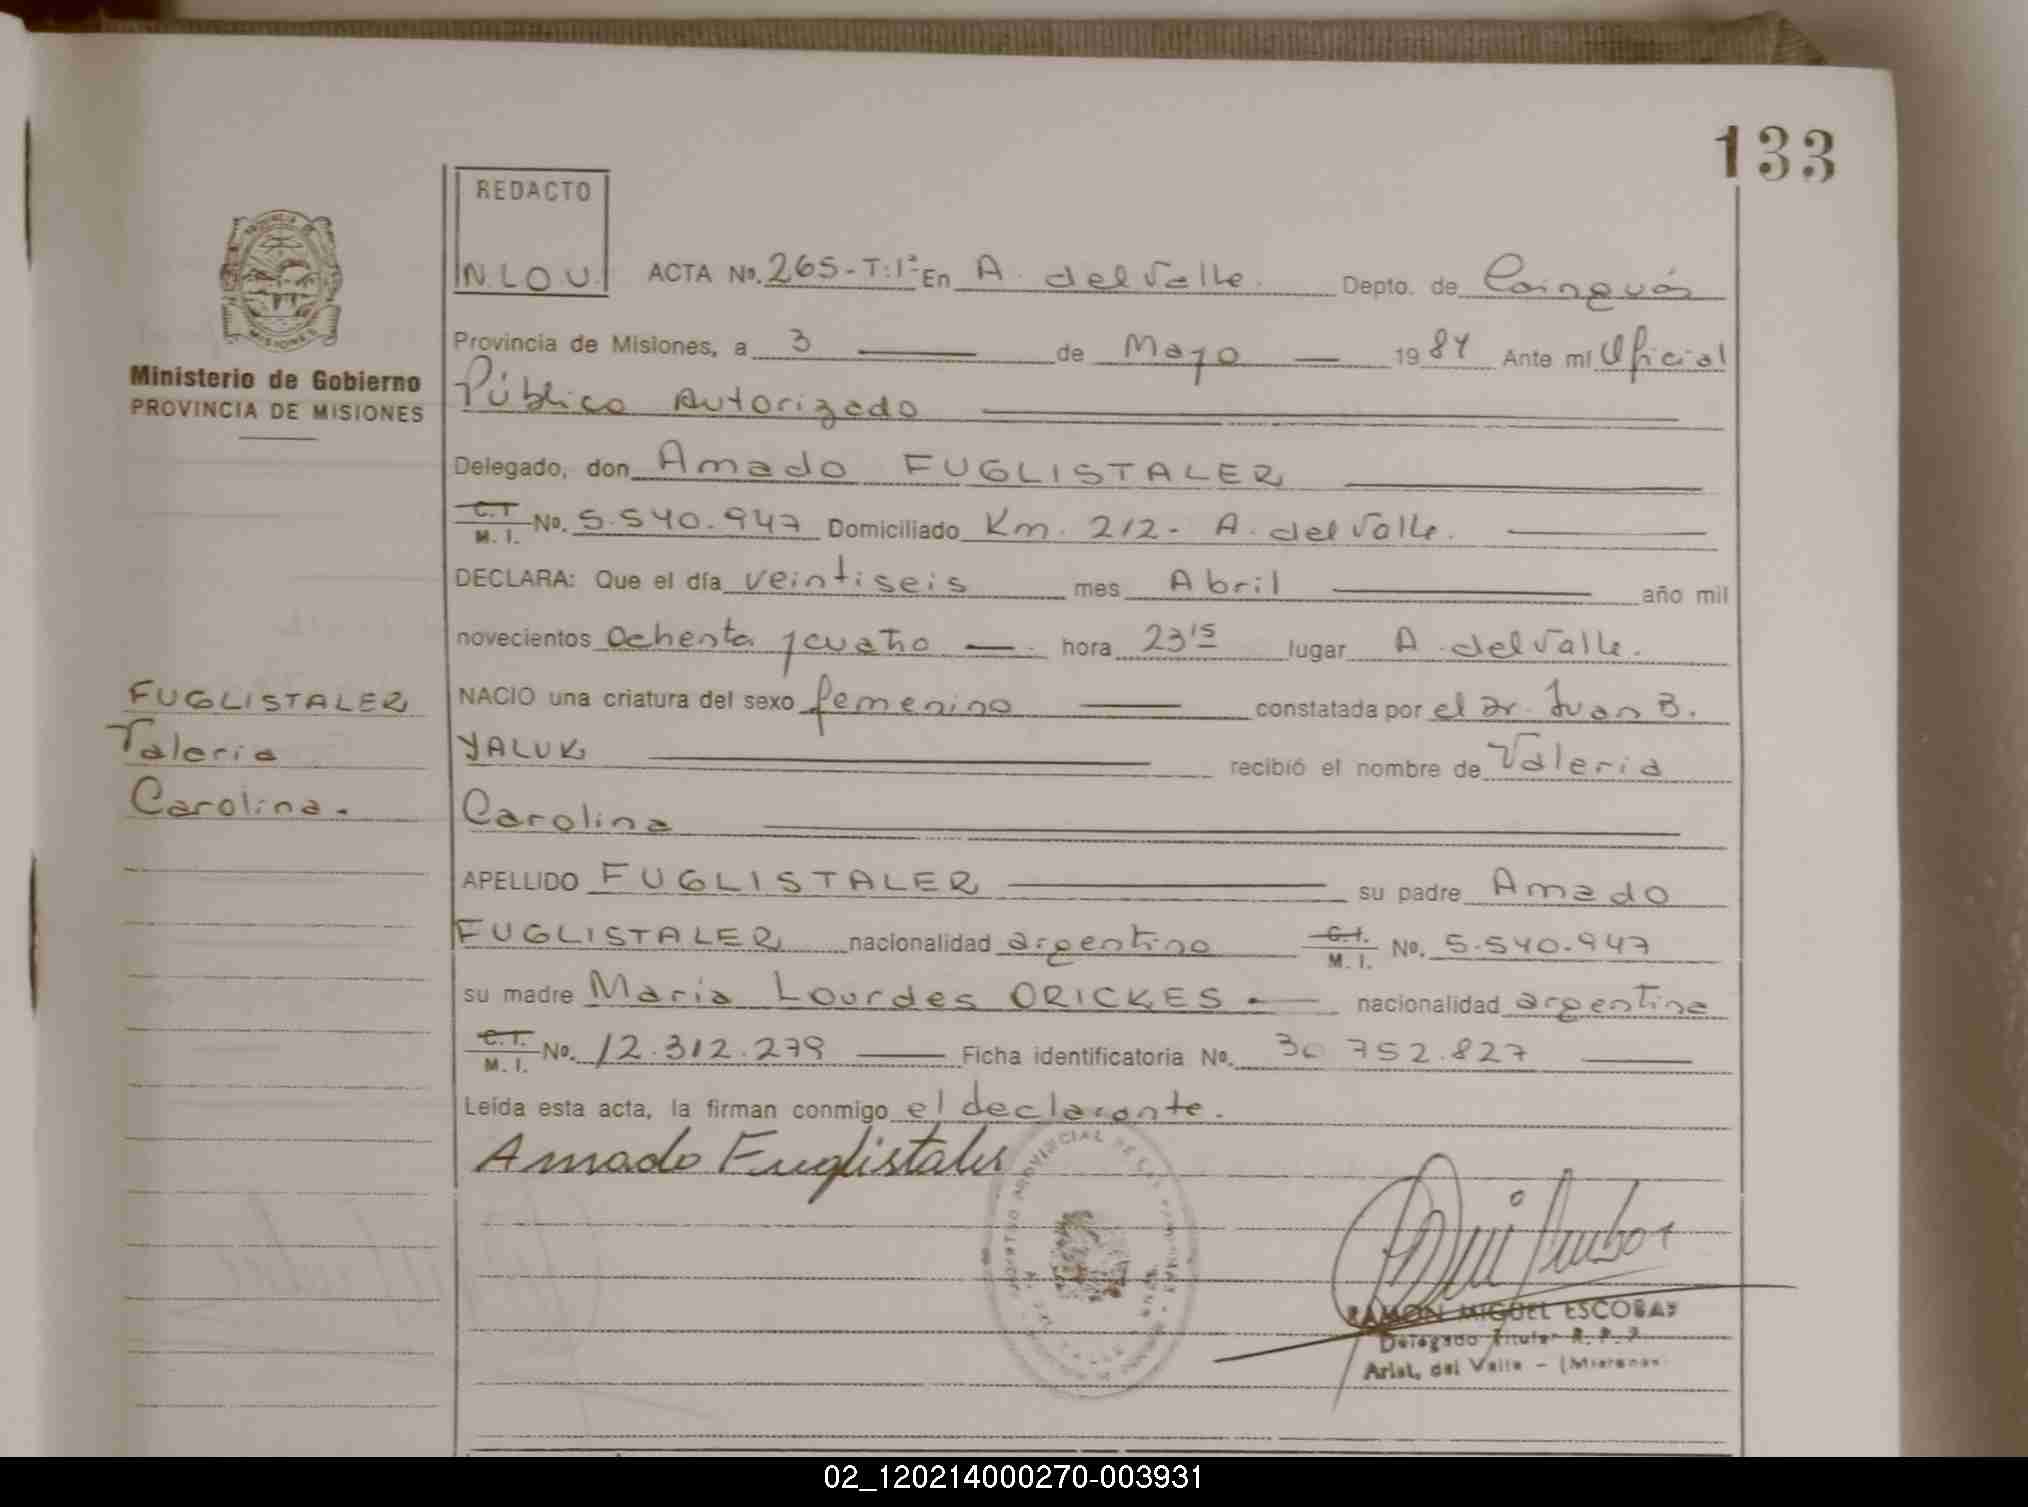 133
REDACTO
N.L.O.U.
ACTA No. 265-T:1º En A. del Valle. Depto. de Cainguás
Ministerio de Gobierno
PROVINCIA DE MISIONES
Provincia de Misiones, a 3 de Mayo 1984 Ante mí Oficial
Público Autorizado
Delegado, don Amado FUGLISTALER
C.I. M. I. No. 5.540.947 Domiciliado Km. 212- A. del Valle.
DECLARA: Que el día veintiseis mes Abril año mil
novecientos ochenta y cuatro hora 23 15 lugar A. del Valle.
FUGLISTALER
Valeria
Carolina.
NACIO una criatura del sexo femenino constatada por el Dr. Juan B.
YALUK recibió el nombre de Valeria
Carolina
APELLIDO FUGLISTALER su padre Amado
FUGLISTALER nacionalidad argentino C.I. M. I. No. 5.540.947
su madre Maria Lourdes ORICKES nacionalidad argentina
C.I. M. I. No. 12.312.279 Ficha identificatoria No. 30 752.827
Leída esta acta, la firman conmigo el declarante.
Amado Fuglistaler
RAMON MIGUEL ESCOBAR
Delegado Titular R. P. P.
Arist. del Valle - (Misiones)
02_120214000270-003931